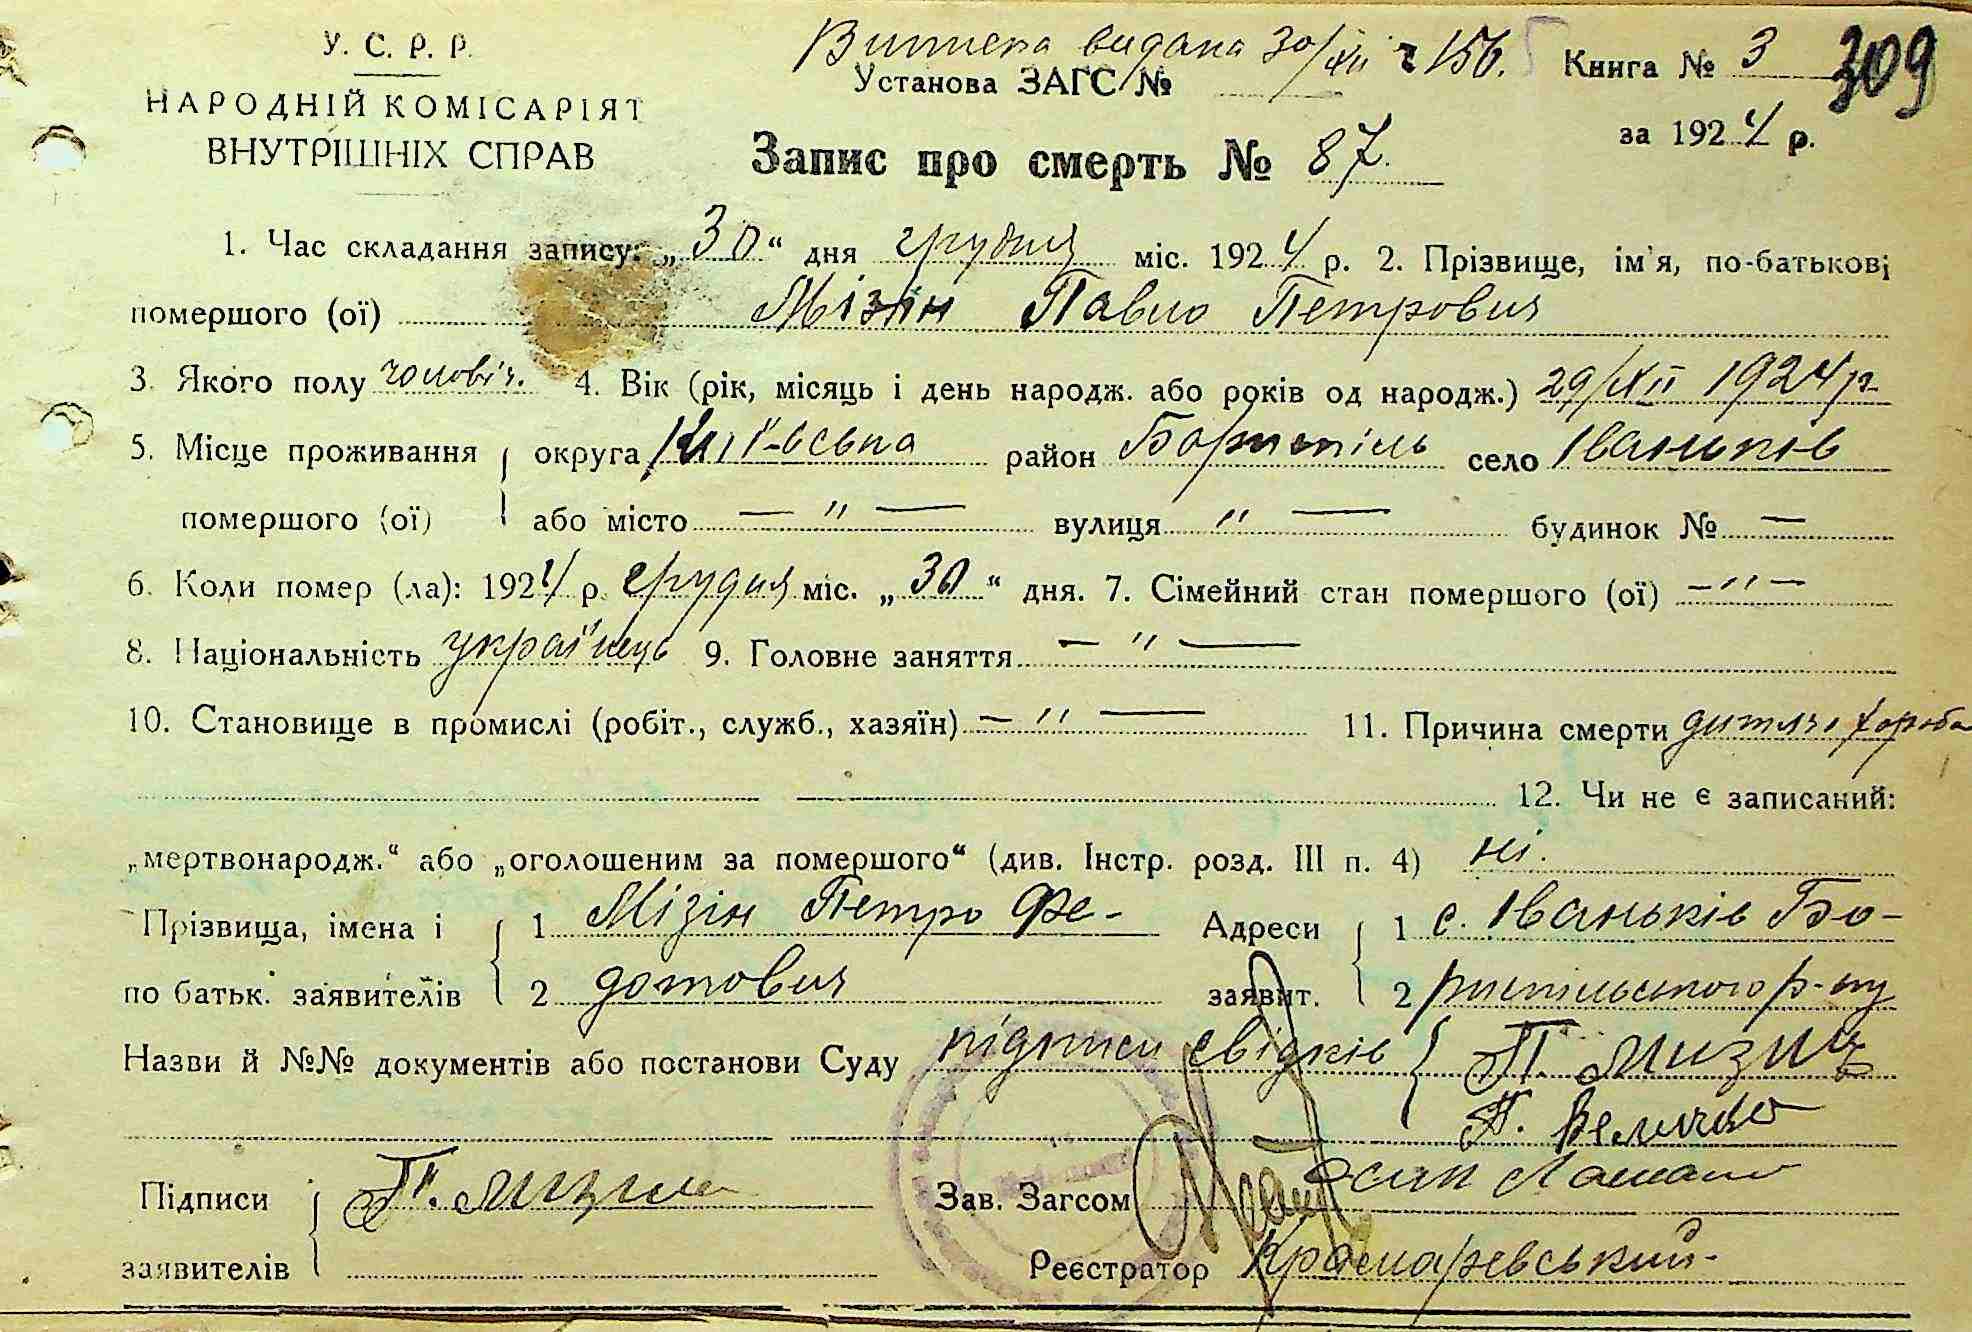 У. С. Р. Р.
НАРОДНІЙ КОМІСАРІЯТ
ВНУТРІШНІХ СПРАВ
Витяг видана 30/XII № 156.
Установа ЗАГС №
Книга № 3
309
за 1924 р.
Запис про смерть № 87.
1. Час складання запису: „30“ дня грудня міс. 1924 р. 2. Прізвище, ім'я, по-батькові
помершого (ої) Мізін Павло Петрович
3. Якого полу чоловіч. 4. Вік (рік, місяць і день народж. або років од народж.) 29/XII 1924 р.
5. Місце проживання округа Київська район Бориспіль село Іваньків
помершого (ої) або місто — „ — вулиця „ — будинок № —
6. Коли помер (ла): 1924 р. грудня міс. „30“ дня. 7. Сімейний стан помершого (ої) — „ —
8. Національність українець 9. Головне заняття — „ —
10. Становище в промислі (робіт., служб., хазяїн) — „ — 11. Причина смерти дитяч. хороба
12. Чи не є записаний:
„мертвонародж.“ або „оголошеним за помершого“ (див. Інстр. розд. III п. 4) ні.
Прізвища, імена і 1 Мізін Петро Фе- Адреси 1 с. Іваньків Бо-
по батьк. заявителів 2 дотович заявит. 2 риспільського р-ну
Назви й №№ документів або постанови Суду підписи свідків П. Мизин
П. Величко
Підписи П. Мизин Зав. Загсом Осип
заявителів Реєстратор Крамаревський